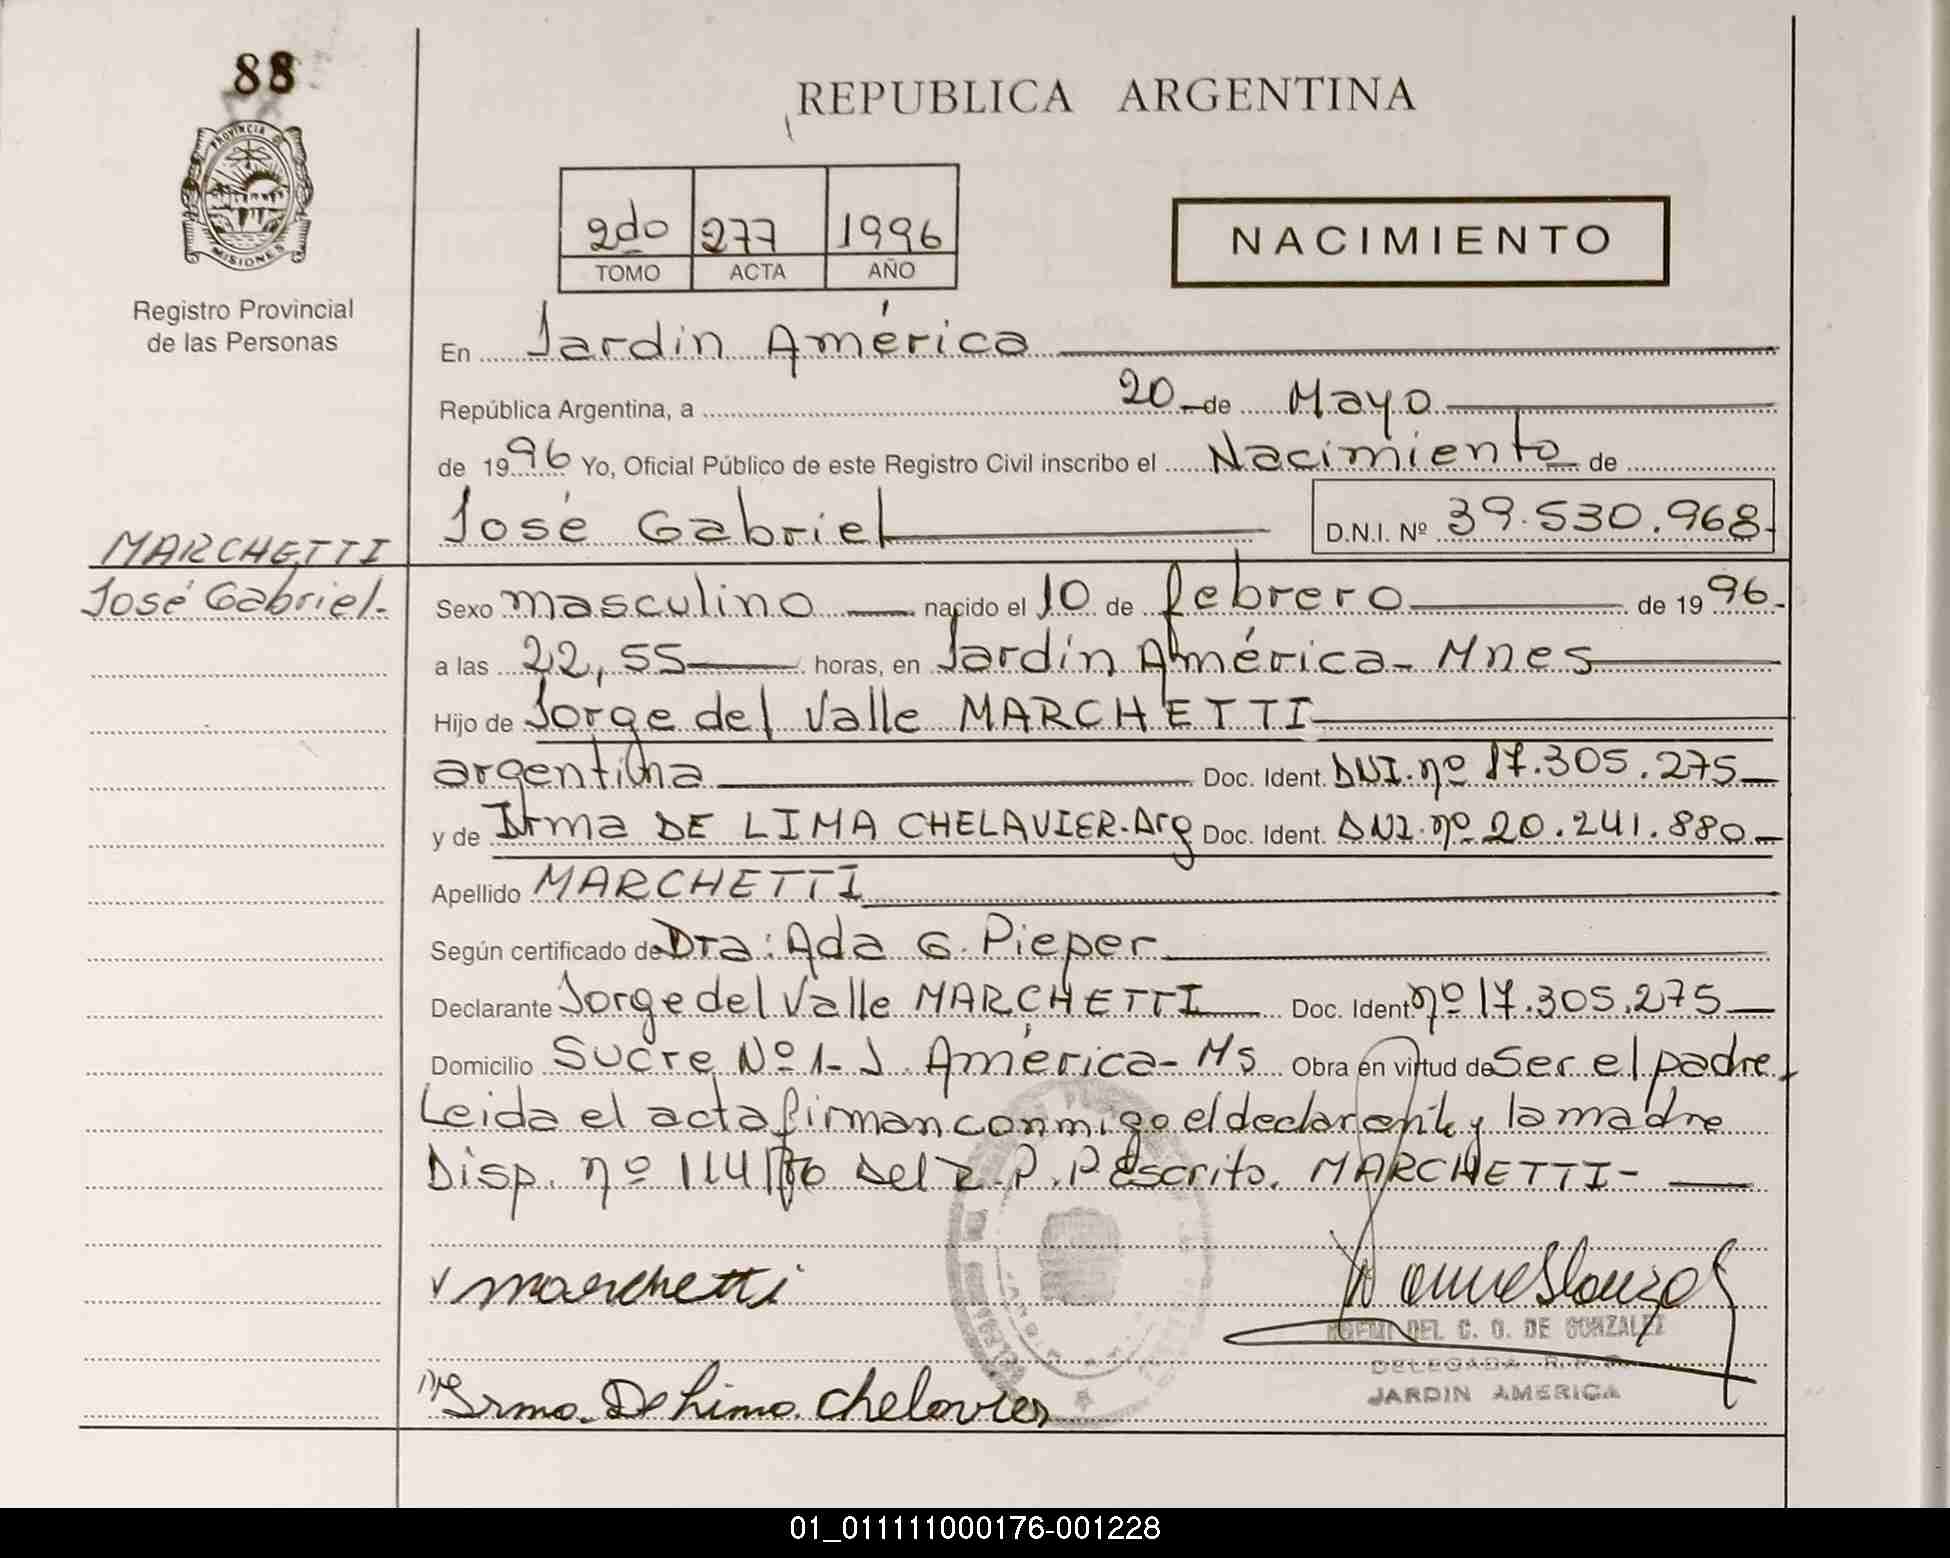 88
REPUBLICA ARGENTINA
PROVINCIA DE
MISIONES
2do 277 1996
TOMO ACTA AÑO
NACIMIENTO
Registro Provincial
de las Personas
En Jardin América
República Argentina, a 20 de Mayo
de 1996 Yo, Oficial Público de este Registro Civil inscribo el Nacimiento de
José Gabriel D.N.I. Nº 39.530.968
MARCHETTI
José Gabriel.
Sexo masculino nacido el 10 de febrero de 1996
a las 22,55 horas, en Jardín América - Mnes
Hijo de Jorge del Valle MARCHETTI
argentina Doc. Ident. DNI. nº 17.305.275
y de Irma DE LIMA CHELAVIER. Arg Doc. Ident. DNI. nº 20.241.880
Apellido MARCHETTI
Según certificado de Dra: Ada G. Pieper
Declarante Jorge del Valle MARCHETTI Doc. Ident nº 17.305.275
Domicilio Sucre Nº 1- J. América - Ms Obra en virtud de Ser el padre
Leida el acta firman conmigo el declarante y la madre
Disp. nº 114 del R.P.P Escrito. MARCHETTI-
marchetti
DEL C. O. DE GONZALEZ
DELEGADA R.P.P.
JARDIN AMERICA
Irma De Lima Chelavier
01_011111000176-001228